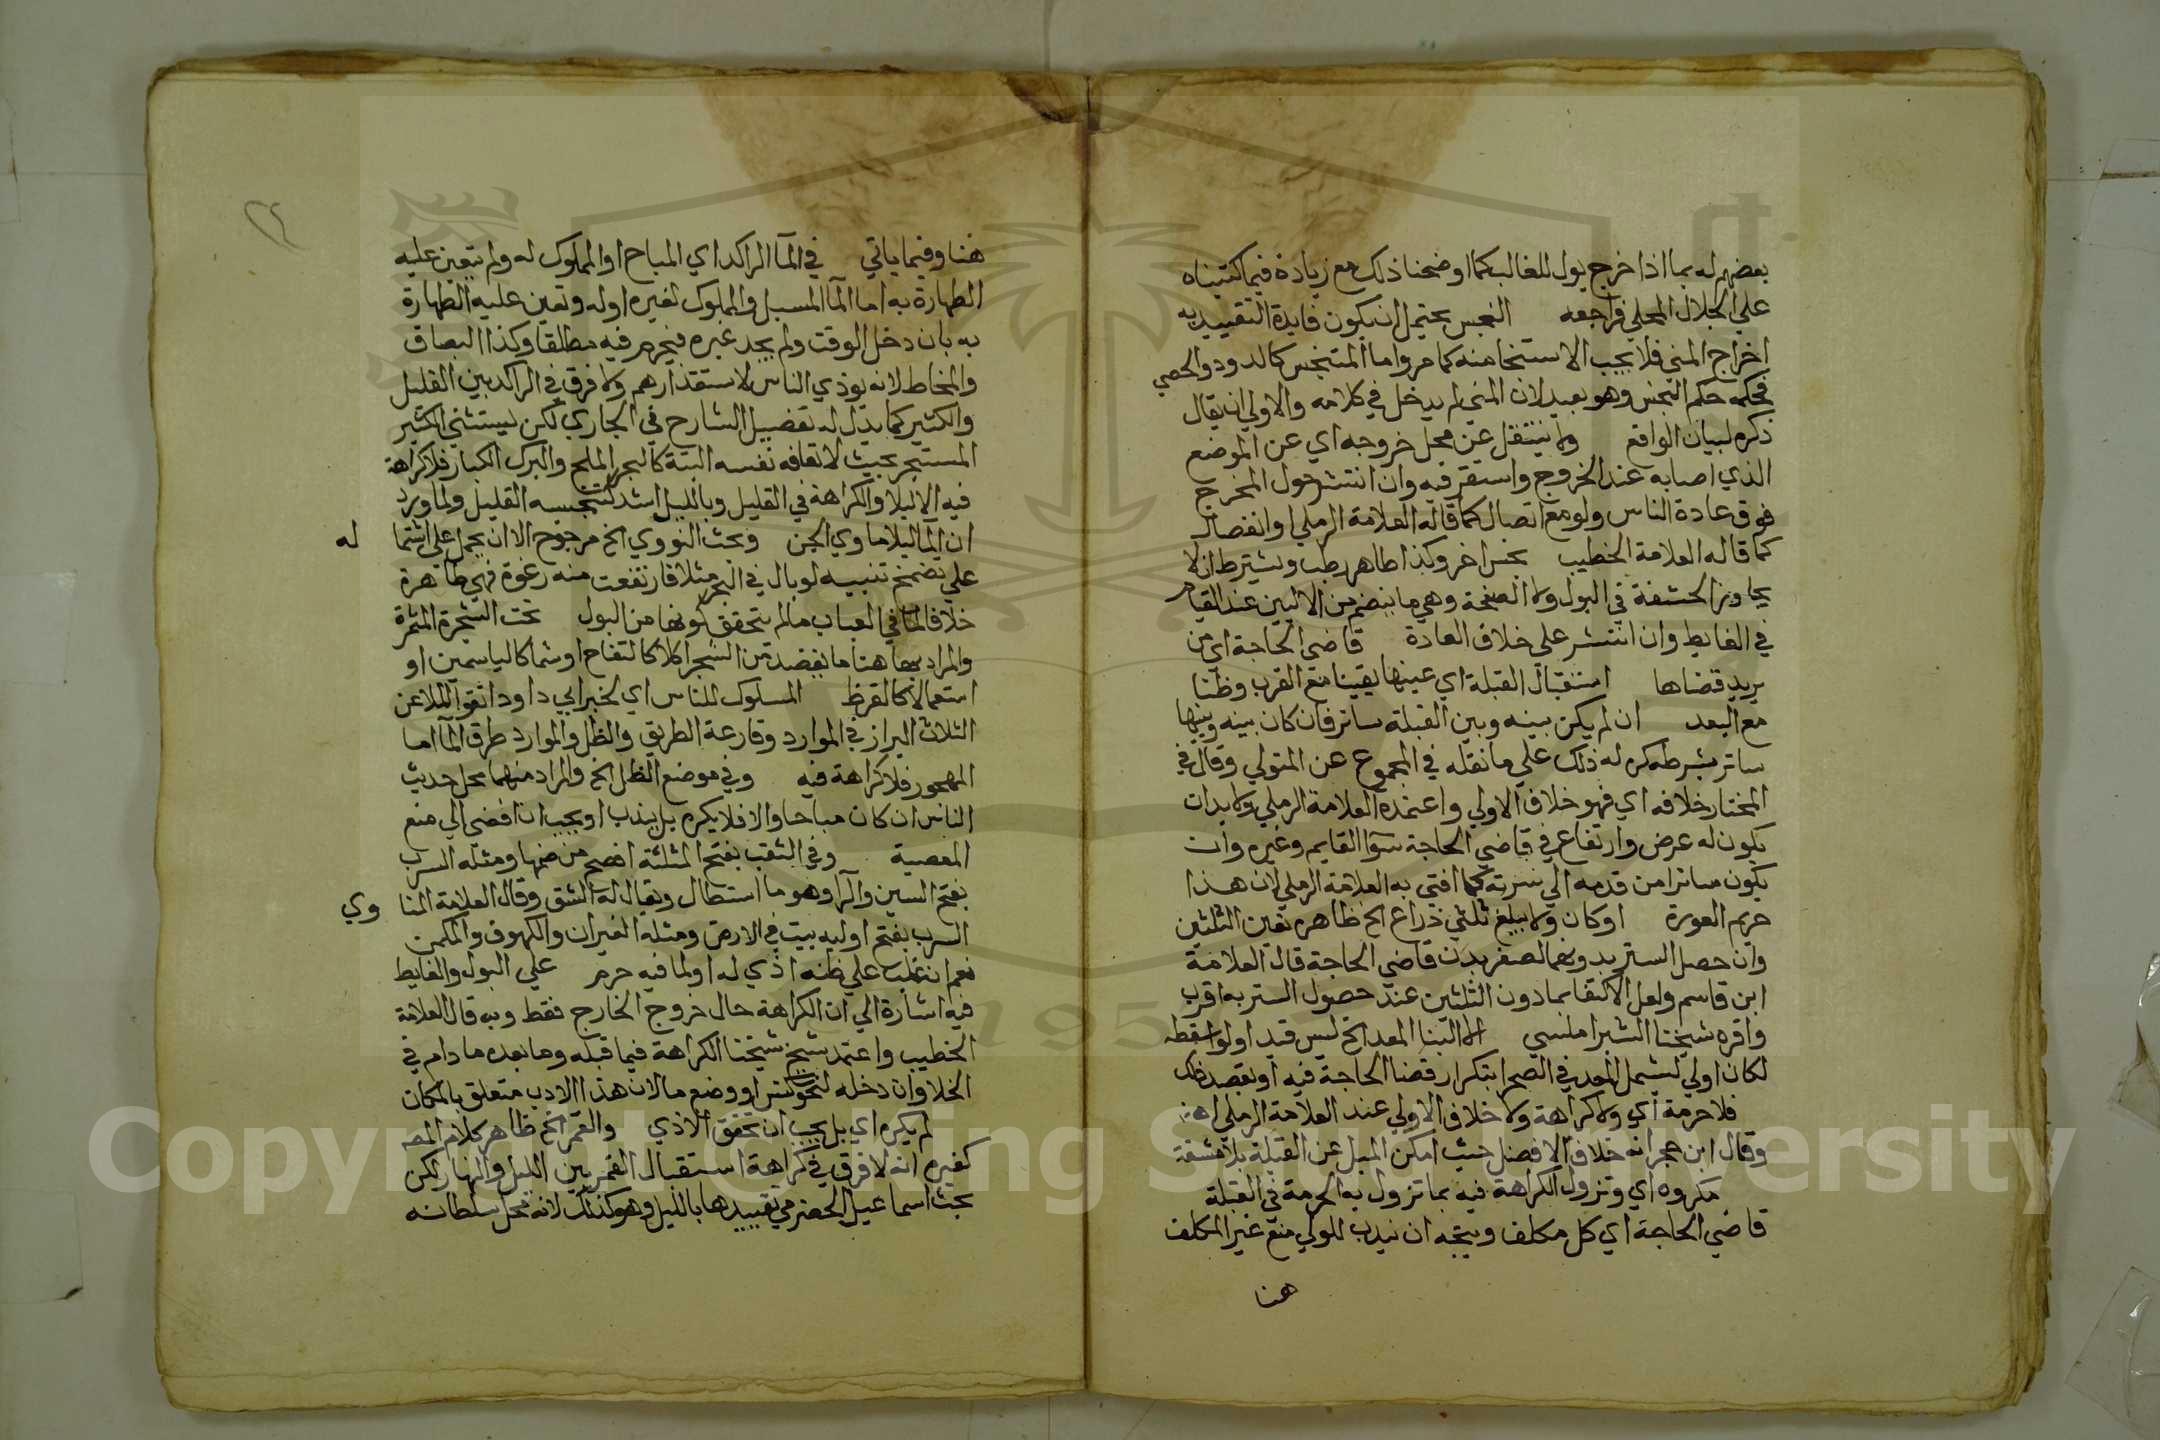 بعضهم له بما اذا خرج بول للغالب كما اوضحنا ذلك مع زيادة فيما كتبناه
علي الجلال المحلي فراجعه النجس يحتمل ان يكون فايدة التقييد به
اخراج المني فلا يجب الاستنجا منه كما مر واما المتنجس كالدود والحصي
فحكمه حكم النجس وهو بعيد لان المني لم يدخل في كلامه والاولي ان يقال
ذكره لبيان الواقع ولا ينتقل عن محل خروجه اي عن الموضع
الذي اصابه عند الخروج واستقر فيه وان انتشر حول المخرج
فوق عادة الناس ولو مع اتصال كما قاله العلامة الرملي او انفصال
كما قاله العلامة الخطيب نجس اخر وكذا طاهر رطب ويشترط ان لا
يجاوز الحشفة في البول ولا الصفحة وهي ما ينضم من الاليين عند القيام
في الغايط وان انتشر علي خلاف العادة قاضي الحاجة اي من
يريد قضاها استقبال القبلة اي عينها يقينا مع القرب وظنا
مع البعد ان لم يكن بينه وبين القبلة ساتر فان كان بينه وبينها
ساتر بشرطه كره له ذلك علي ما نقله في المجموع عن المتولي وقال في
المختار خلافه اي فهو خلاف الاولي واعتمده العلامة الرملي ولا بد ان
يكون له عرض وارتفاع في قاضي الحاجة سوآ القايم وغيره وان
يكون ساترا من قدمه الي سرته كما افتي به العلامة الرملي لان هذا
حريم العورة او كان ولا يبلغ ثلثي ذراع الخ ظاهره تعين الثلثين
وان حصل الستر بدونهما لصغر بدن قاضي الحاجة قال العلامة
ابن قاسم ولعل الاكتفا بما دون الثلثين عند حصول الستر به اقرب
واقره شيخنا الشبراملسي الا البنا المعد الخ ليس قيدا ولو اسقطه
لكان اولي ليشمل المعد في الصحرا بتكرار قضا الحاجة فيه او بقصد ذلك
فلا حرمة اي ولا كراهة ولا خلاف الاولي عند العلامة الرملي اهـ
وقال ابن حجر انه خلاف الافضل حيث امكن الميل عن القبلة بلا مشقة
مكروه اي وتزول الكراهة فيه بما تزول به الحرمة في القبلة
قاضي الحاجة اي كل مكلف ويتجه ان يندب للولي منع غير المكلف
هنا
٢٢
هنا وفيما ياتي في المآ الراكد اي المباح او المملوك له ولم يتعين عليه
الطهارة به اما المآ المسبل والمملوك لغيره او له وتعين عليه الطهارة
به بان دخل الوقت ولم يجد غيره فيحرم فيه مطلقا وكذا البصاق
والمخاط لانه يوذي الناس لاستقذارهم ولا فرق في الراكد بين القليل
والكثير كما يدل له تفصيل الشارح في الجاري لكن يستثني الكثير
المستبحر بحيث لا تعافه نفسه البتة كالبحر الملح والبرك الكبار فلا كراهة
فيه الا ليلا والكراهة في القليل وبالليل اشد لتنجيسه القليل ولما ورد
ان المآ ليلا ماوي الجن وبحث النووي الخ مرجوح الا ان يحمل علي اشتما له
علي تضمخ تنبيه لو بال في البحر مثلا فارتفعت منه رغوة فهي طاهرة
خلافا لما في العباب ما لم يتحقق كونها من البول تحت الشجرة المثمرة
والمراد بها هنا ما يقصد من الشجر اكلا كالتفاح او شما كالياسمين او
استعمالا كالقرظ المسلوك للناس اي لخبر ابي داود اتقوا الملاعن
الثلاث البراز في الموارد وقارعة الطريق والظل والموارد طرق المآ اما
المهجور فلا كراهة فيه وفي موضع الظل الخ والمراد منهما محل حديث
الناس ان كان مباحا والا فلا يكره بل يندب او يجب ان افضي الي منع
المعصية وفي الثقب بفتح المثلثة افصح من ضمها ومثله السرب
بفتح السين والرآ وهو ما استطال ويقال له الشق وقال العلامة المنا وي
السرب بفتح اوليه بيت في الارض ومثله الغيران والكهوف والمكمن
نعم ان غلب علي ظنه اذي له او لما فيه حرم علي البول والغايط
فيه اشارة الي ان الكراهة حال خروج الخارج فقط وبه قال العلامة
الخطيب واعتمد شيخ شيخنا الكراهة فيما قبله وما بعده ما دام في
الخلا وان دخله لنحو كنس او وضع مالان هذا الادب متعلق بالمكان
لم يكره اي بل يجب ان تحقق الاذي والقمر الخ ظاهر كلام المصـ
كغيره انه لا فرق في كراهة استقبال القمر بين الليل والنهار لكن
بحث اسماعيل الحضرمي تقييدها بالليل وهو كذلك لانه محل سلطانه
Copyright © King S ersity
195